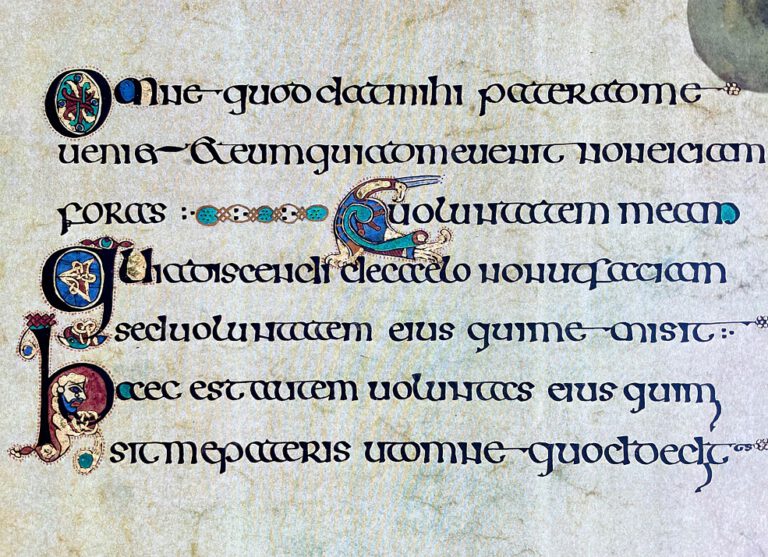 Omne quod dat mihi pater ad me
ueniet & eum qui ad me uenit non eiciam
foras :· uoluntatem meam
Quia discendi de caelo non ut faciam
sed uoluntatem eius qui me misit :·
haec est autem uoluntas eius qui mi
sit me pateris ut omne quod dedit